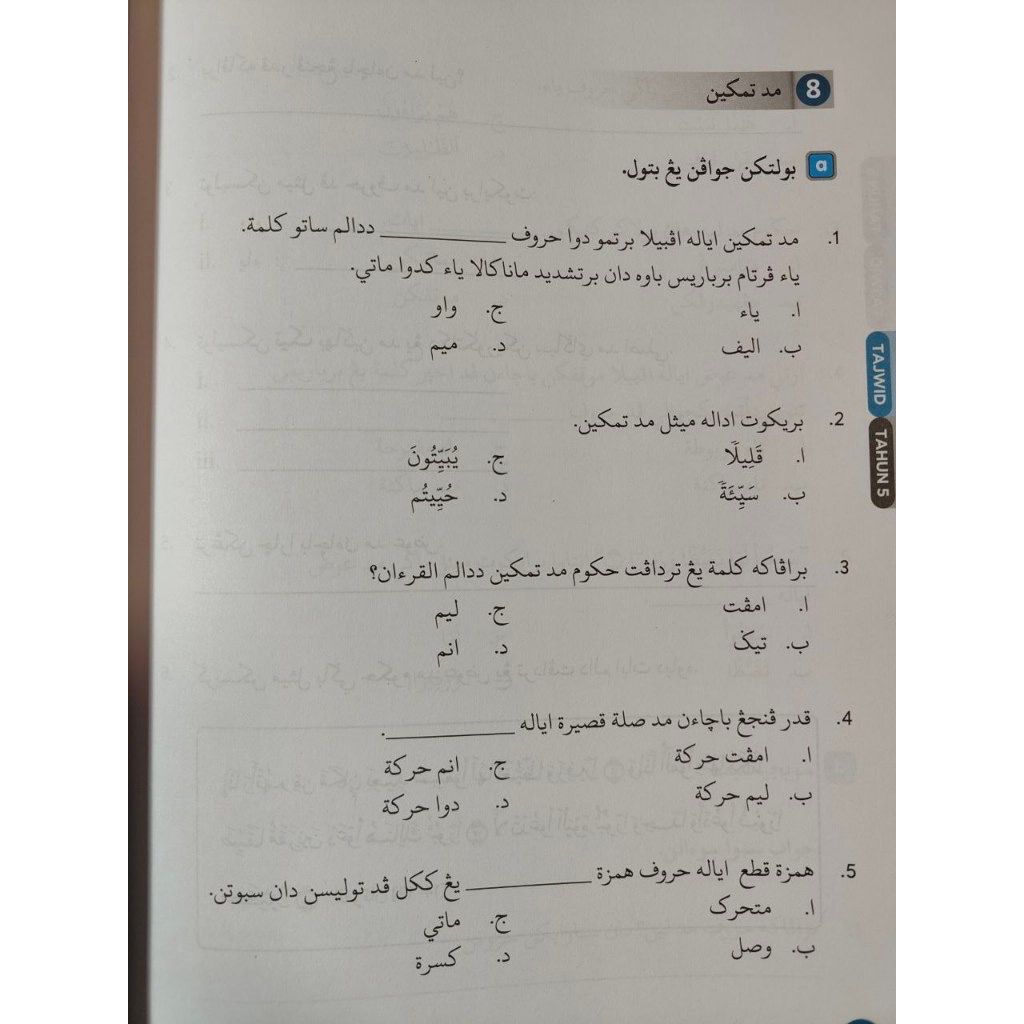 8 مد تمكين
a بولتکن جواڤن يڠ بتول.
1. مد تمکين اياله اڤبيلا برتمو دوا حروف __________ ددالم ساتو کلمة.
ياء ڤرتام برباريس باوه دان برتشديد ماناکالا ياء کدوا ماتي.
ا. ياء ج. واو
ب. اليف د. ميم
2. بريکوت اداله ميثل مد تمکين.
ا. قَلِيلًا ج. يُبَيِّتُونَ
ب. سَيِّئَةً د. حُيِّيتُم
3. براڤاکه کلمة يڠ ترداڤت حکوم مد تمکين ددالم القرءان؟
ا. امڤت ج. ليم
ب. تيݢ د. انم
4. قدر ڤنجڠ باچاءن مد صلة قصيرة اياله __________.
ا. امڤت حرکة ج. انم حرکة
ب. ليم حرکة د. دوا حرکة
5. همزة قطع اياله حروف همزة __________ يڠ ککل ڤد توليسن دان سبوتن.
ا. متحرک ج. ماتي
ب. وصل د. کسرة
TAJWID
TAHUN 5